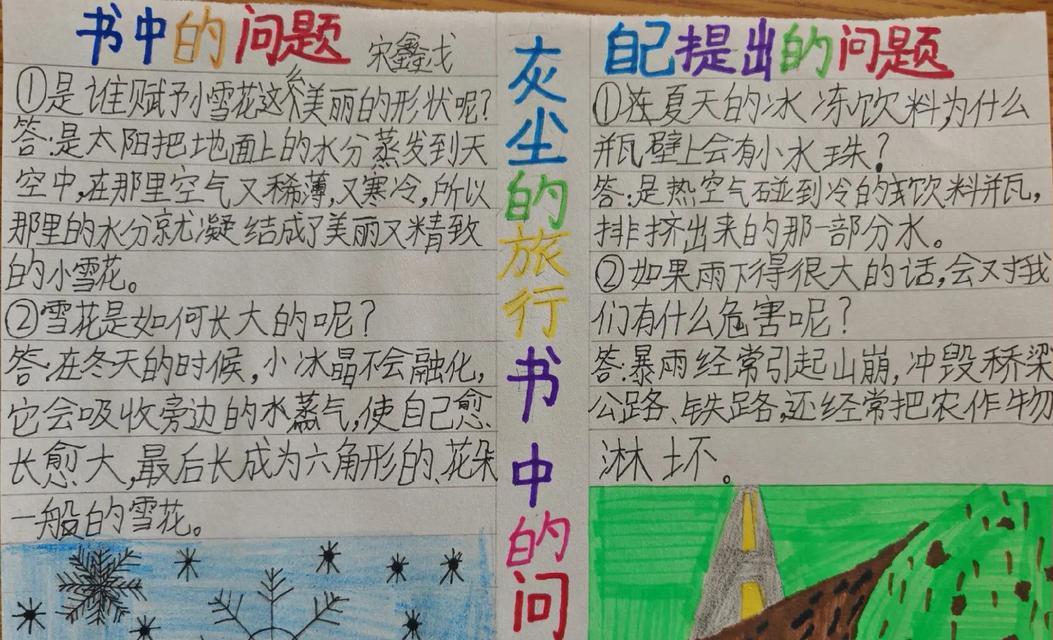 书中的问题 宋鑫戈
①是谁赋予小雪花这么美丽的形状呢？
答:是太阳把地面上的水分蒸发到天
空中,在那里空气又稀薄,又寒冷,所以
那里的水分就凝结成了美丽又精致
的小雪花。
②雪花是如何长大的呢？
答:在冬天的时候,小冰晶不会融化,
它会吸收旁边的水蒸气,使自己愈
长愈大,最后长成为六角形的花朵
一般的雪花。
灰尘的旅行书中的问
自己提出的问题
①在夏天的冰冻饮料,为什么
瓶壁上会有小水珠？
答:是热空气碰到冷的饮料瓶,
排挤出来的那一部分水。
②如果雨下得很大的话,会又对我
们有什么危害呢？
答:暴雨经常引起山崩,冲毁桥梁
公路、铁路,还经常把农作物
淋坏。